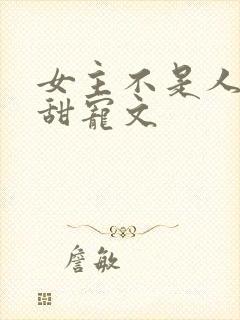 女主不是人
甜宠文
詹敏